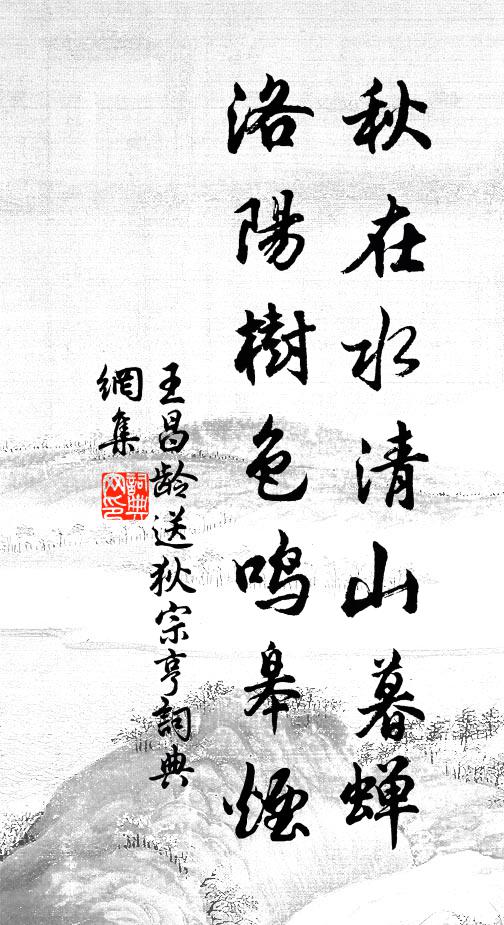 秋在水清山暮蝉
洛陽樹色鳴皋煙
王昌龄送狄宗亨詞典
網集
詞典
网印